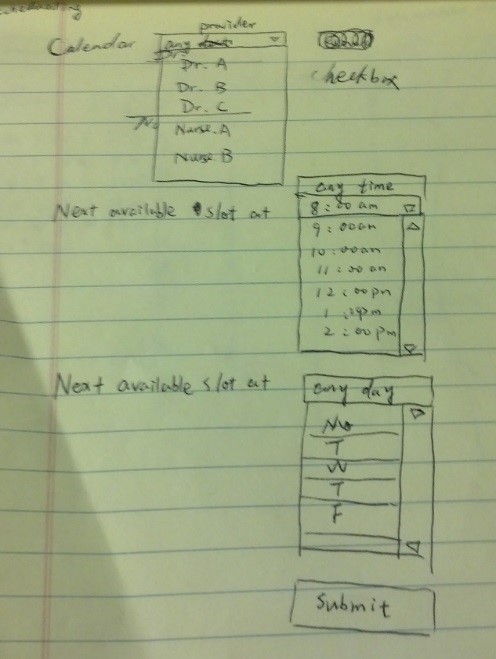 provider
Calendar any
Dr. A
checkbox
Dr. B
Dr. C
Nurse. A
Nurse B
any time
Next available slot at 8:00 am
9:00am
10:00am
11:00 am
12:00pm
2:00pm
Next available slot at any day
Mo
T
W
T
F
Submit